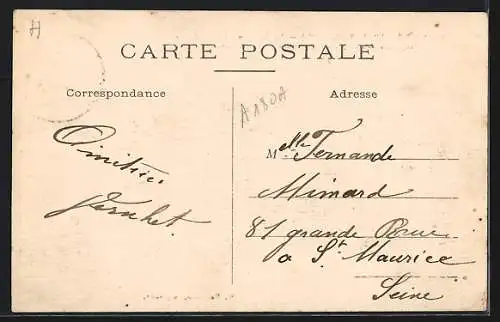 H
CARTE POSTALE
Correspondance
Adresse
A180A
Amitiés
Mlle Fernande
Mimard
81 grande Rue
a St Maurice
Seine